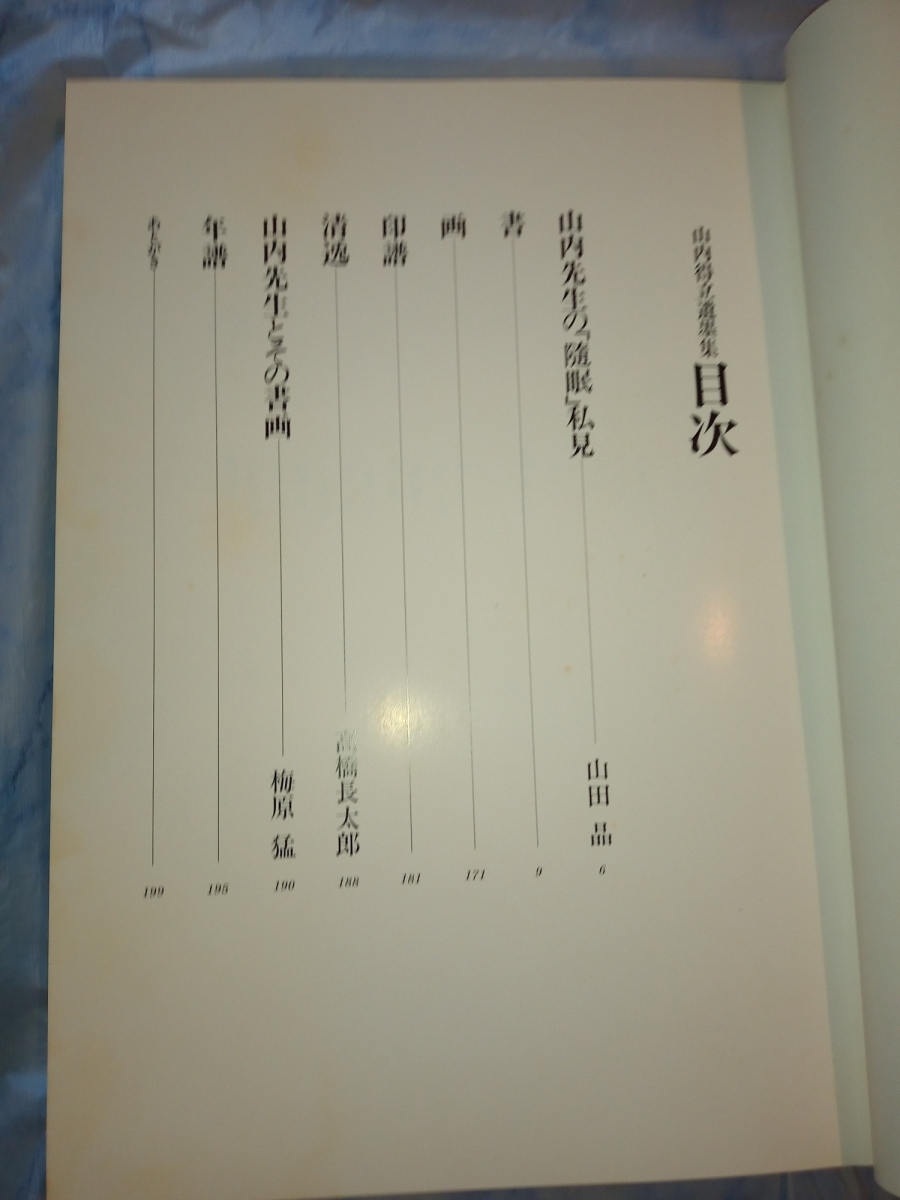 山内得立遺墨集 目次
山内先生の『隨眠』私見 山田 晶 6
書 9
画 171
印譜 181
清逸 高橋長太郎 188
山内先生とその書画 梅原 猛 190
年譜 195
あとがき 199